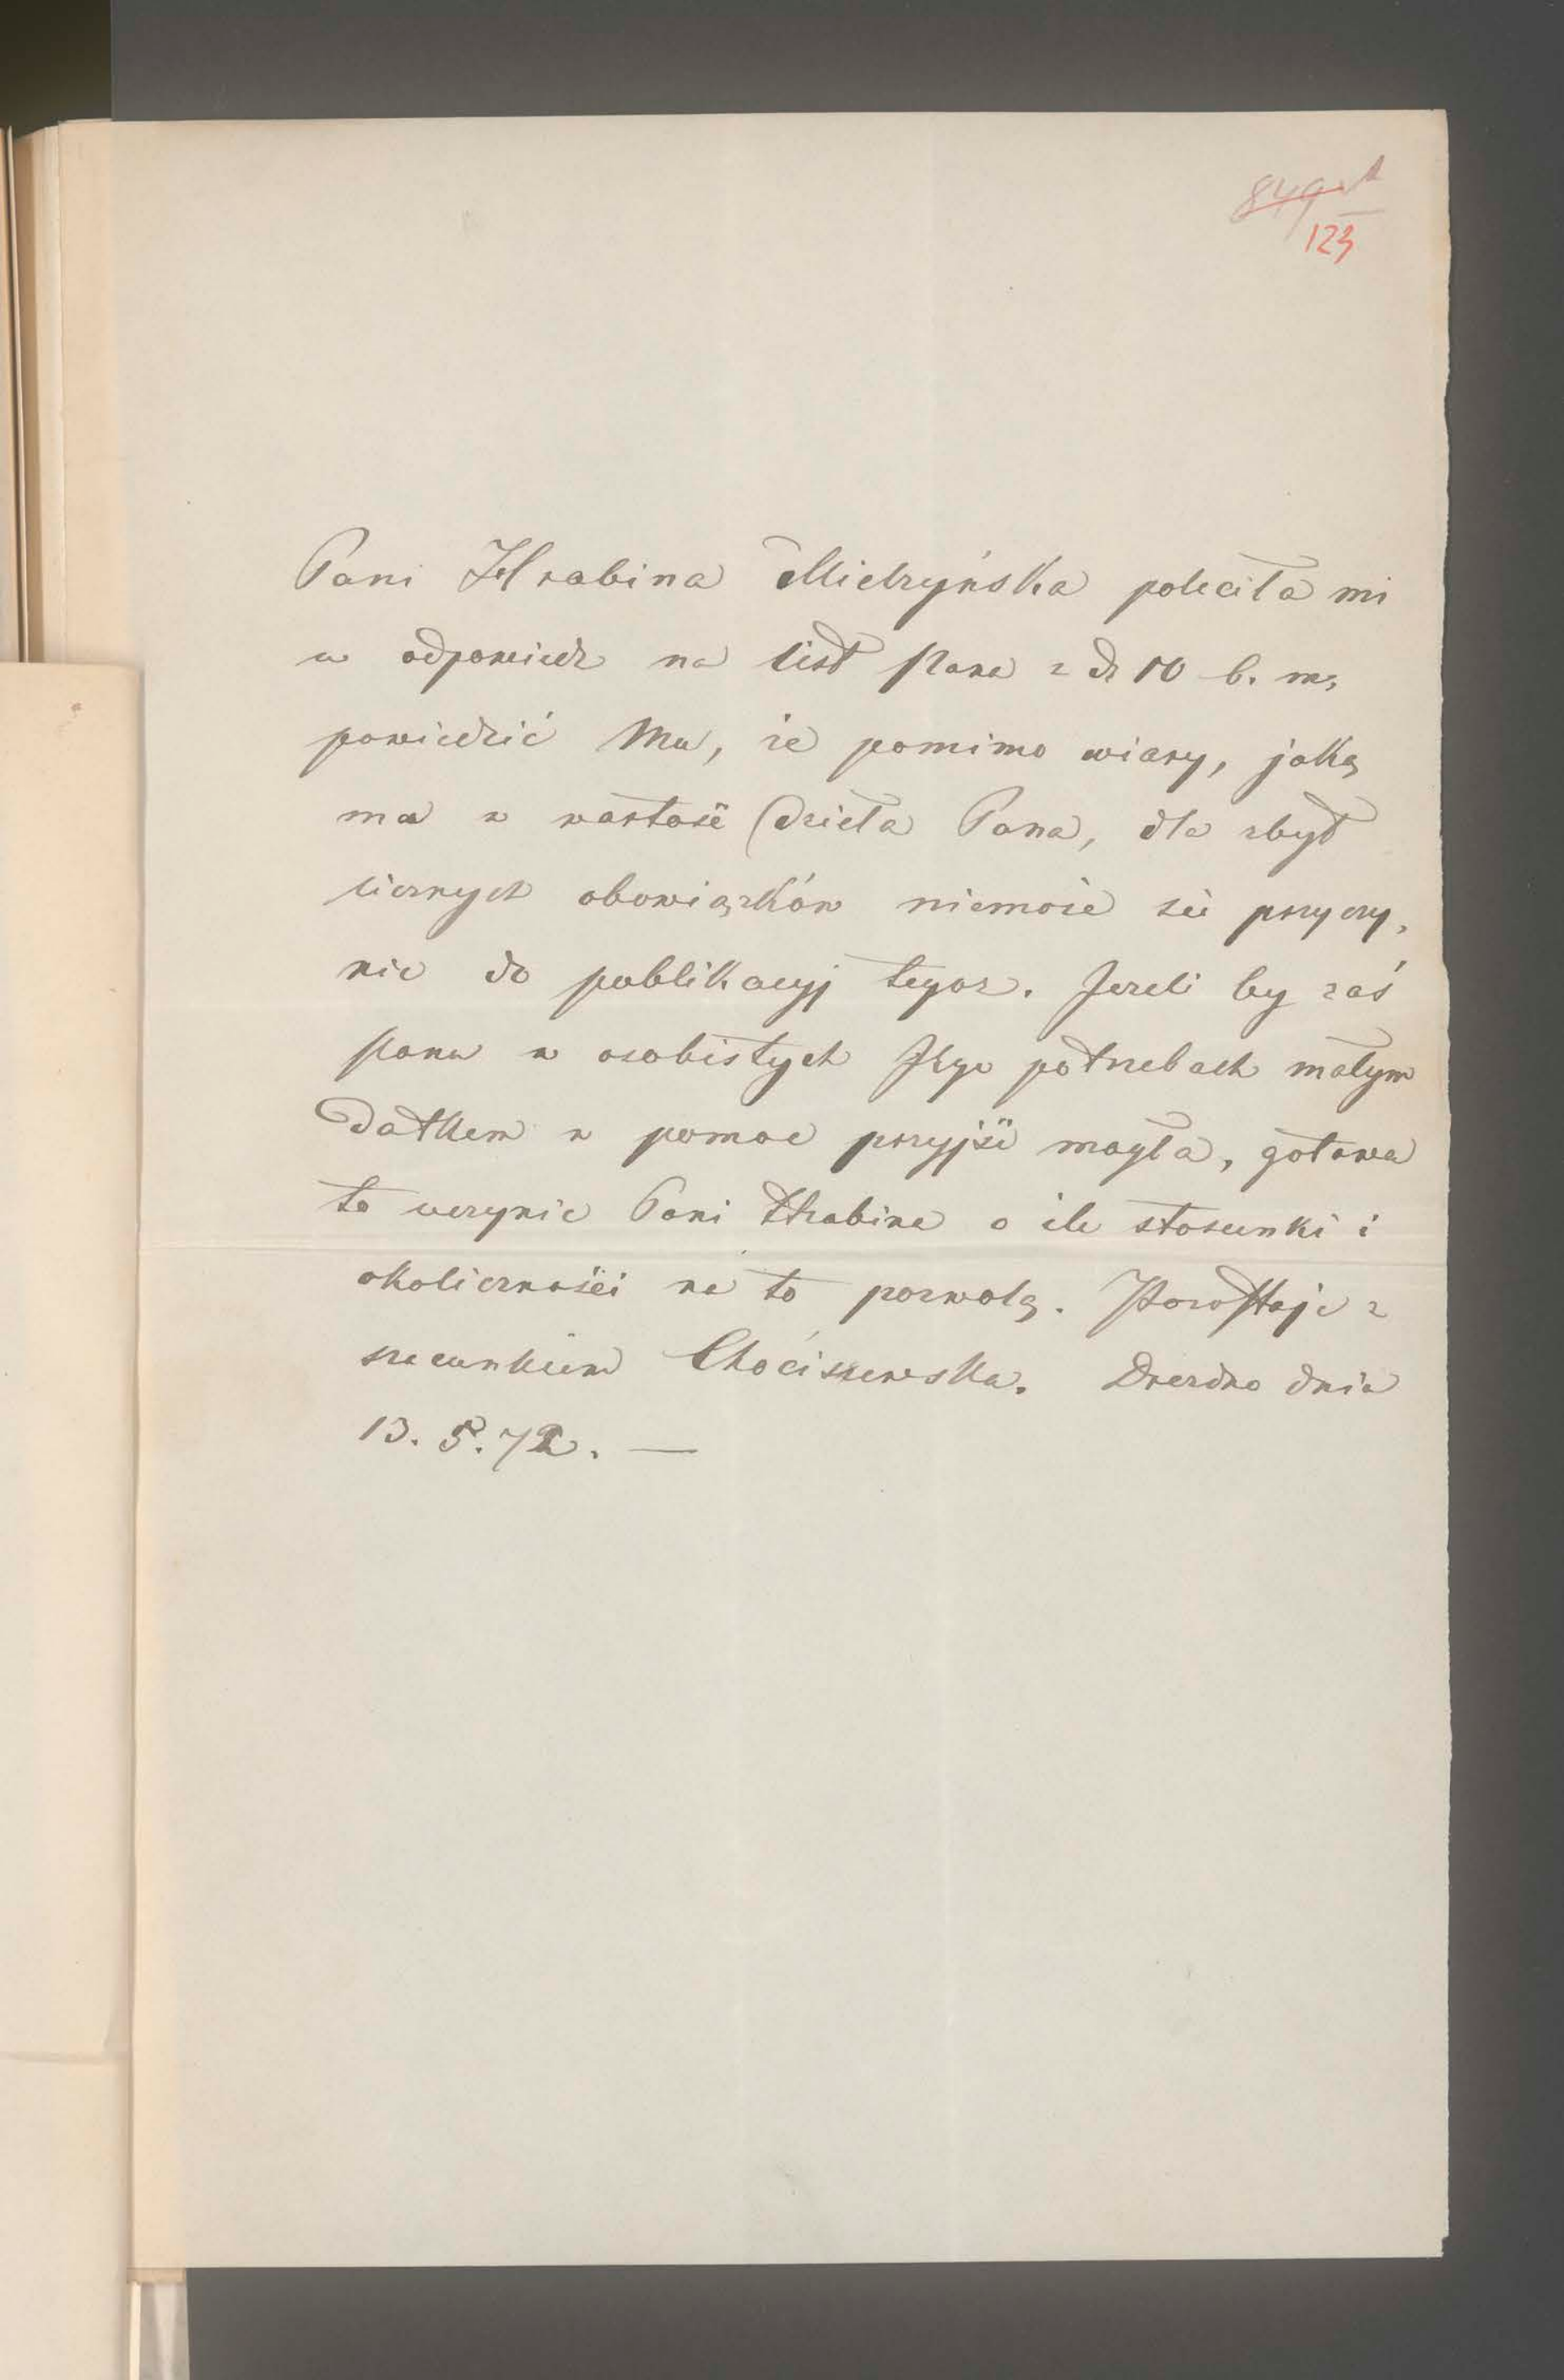 123
Pani Hrabina Mielzyńska poleciła mi
w odpowiedz na list Pana z d. 10 b. m.
powiedzić Mu, że pomimo wiary, jaką
ma w wartość dzieła Pana, dla zbyt
licznych obowiązków niemoże się przyczy,
nic do publikacyj tegoz. Jezeli by zaś
Panu w osobistych Jego potrzebach małym
datkem w pomoc przyjść mogła, gotowa
to uczynic Pani Hrabina o ile stosunki i
okoliczności na to pozwolą. Pozostaje z
szacunkiem Chociszewska. Drezdno dnia
13. 5. 72. —